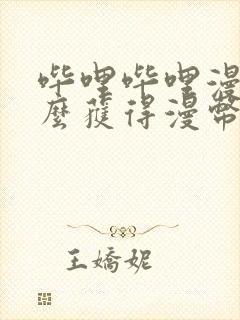 哔哩哔哩漫
麼獲得漫幣
王嬌妮